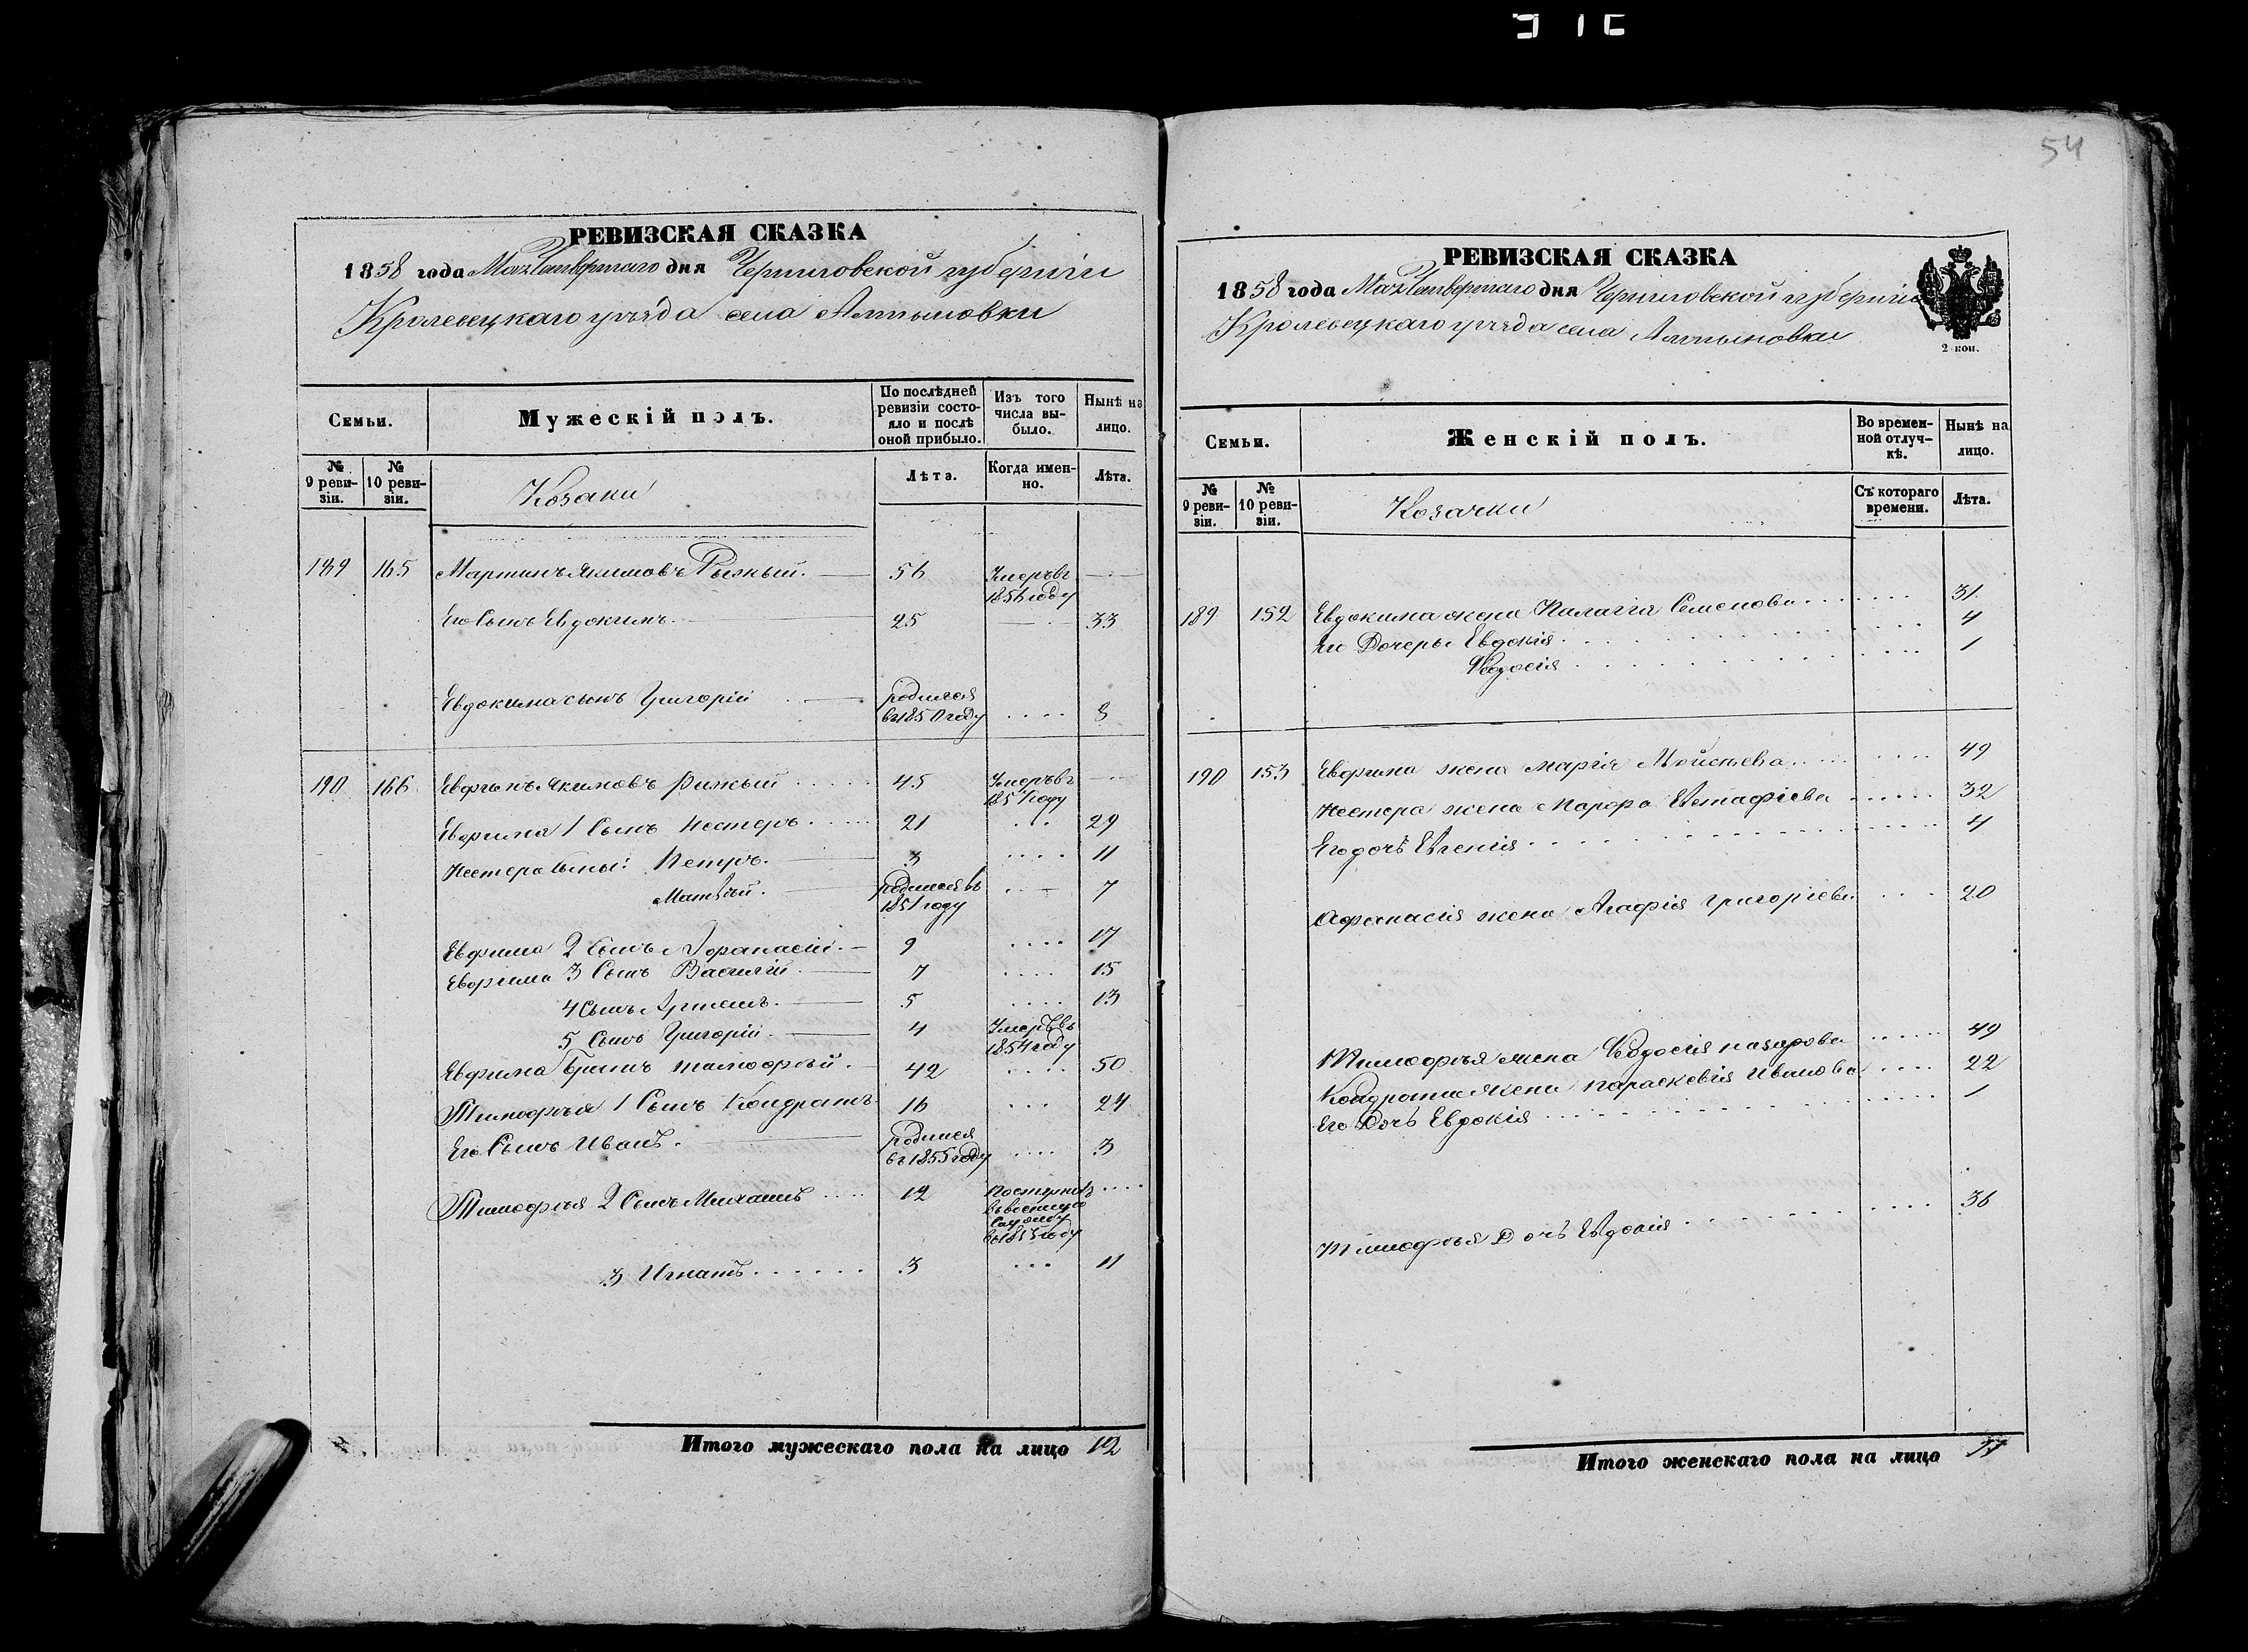 54
РЕВИЗСКАЯ СКАЗКА
1858 года Мая Четвертаго дня Черниговской губернiи
Кролевецкаго уѣзда села Алтыновки
Семьи.
Мужескiй полъ.
По послѣдней ревизiи состо-яло и послѣ оной прибыло.
Изъ того числа вы-было.
Нынѣ на лицо.
№ 9 реви-зiи.
№ 10 реви-зiи.
Козаки
Лѣта.
Когда имен-но.
Лѣта.
189 165 Мартинъ Якимовъ Рыжый. 56 Умеръ въ 1856 году
Его Сынъ Евдокимъ. 25 33
Евдокима сынъ Григорiй родился въ 1850 году .... 8
190 166 Евфимъ Якимовъ Рижый 45 Умеръ въ 1854 году
Евфима 1 Сынъ Нестеръ 21 ... 29
Нестера Сыны: Петръ. 3 .... 11
Матвѣй. родился въ 1851 году 7
Евфима 2 Сынъ Афанасiй. 9 .... 17
Евфима 3 Сынъ Василiй. 7 .... 15
4 Сынъ Артемъ. 5 .... 13
5 Сынъ Григорiй. 4 Умеръ въ 1854 году
Евфима Братъ Тимофѣй. 42 .... 50
Тимофѣя 1 Сынъ Кондратъ 16 ... 24
Его Сынъ Иванъ. родился въ 1855 году .... 3
Тимофѣя 2 Сынъ Михаилъ 12 Поступилъ въ военную службу въ 1855 году ....
3 Игнатъ 3 ... 11
Итого мужескаго пола на лицо 12
РЕВИЗСКАЯ СКАЗКА
1858 года Мая Четвертаго дня Черниговской губернiи
Кролевецкаго уѣзда села Алтыновки
2 коп.
Семьи.
Женскiй полъ.
Во времен-ной отлуч-кѣ.
Нынѣ на лицо.
№ 9 реви-зiи.
№ 10 реви-зiи.
Козачки
Съ котораго времени.
Лѣта.
189 152 Евдокима жена Палагiя Семенова 31
Его Дочеры Евдокiя 4
Феодосiя 1
190 153 Евфима жена Марiя Мойсѣева 49
Нестера жена Марфа Евстафiева 32
Его дочь Евгенiя 4
Афанасiя жена Агафiя Григорiева 20
Тимофѣя жена Феодосiя Назарова 49
Кондрата жена Параскевiя Иванова 22
Его Дочь Евдокiя 1
Тимофѣя Дочь Евдокiя 36
Итого женскаго пола на лицо 11